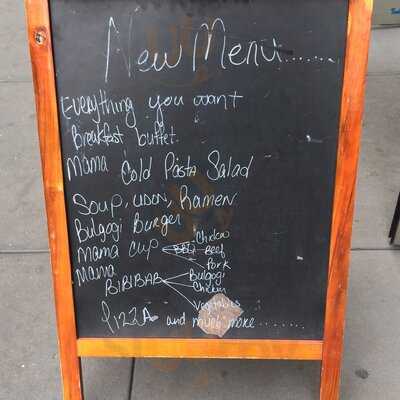 New Menu.......
Everything you want
Breakfast buffet.
Mama Cold Pasta Salad
Soup, UDON, Ramen
Bulgogi Burger
Mama cup BBQ Chicken
Beef
Pork
Mama BIBIBAB Bulgogi
Chicken
Vegetables
PIZZA and much more........